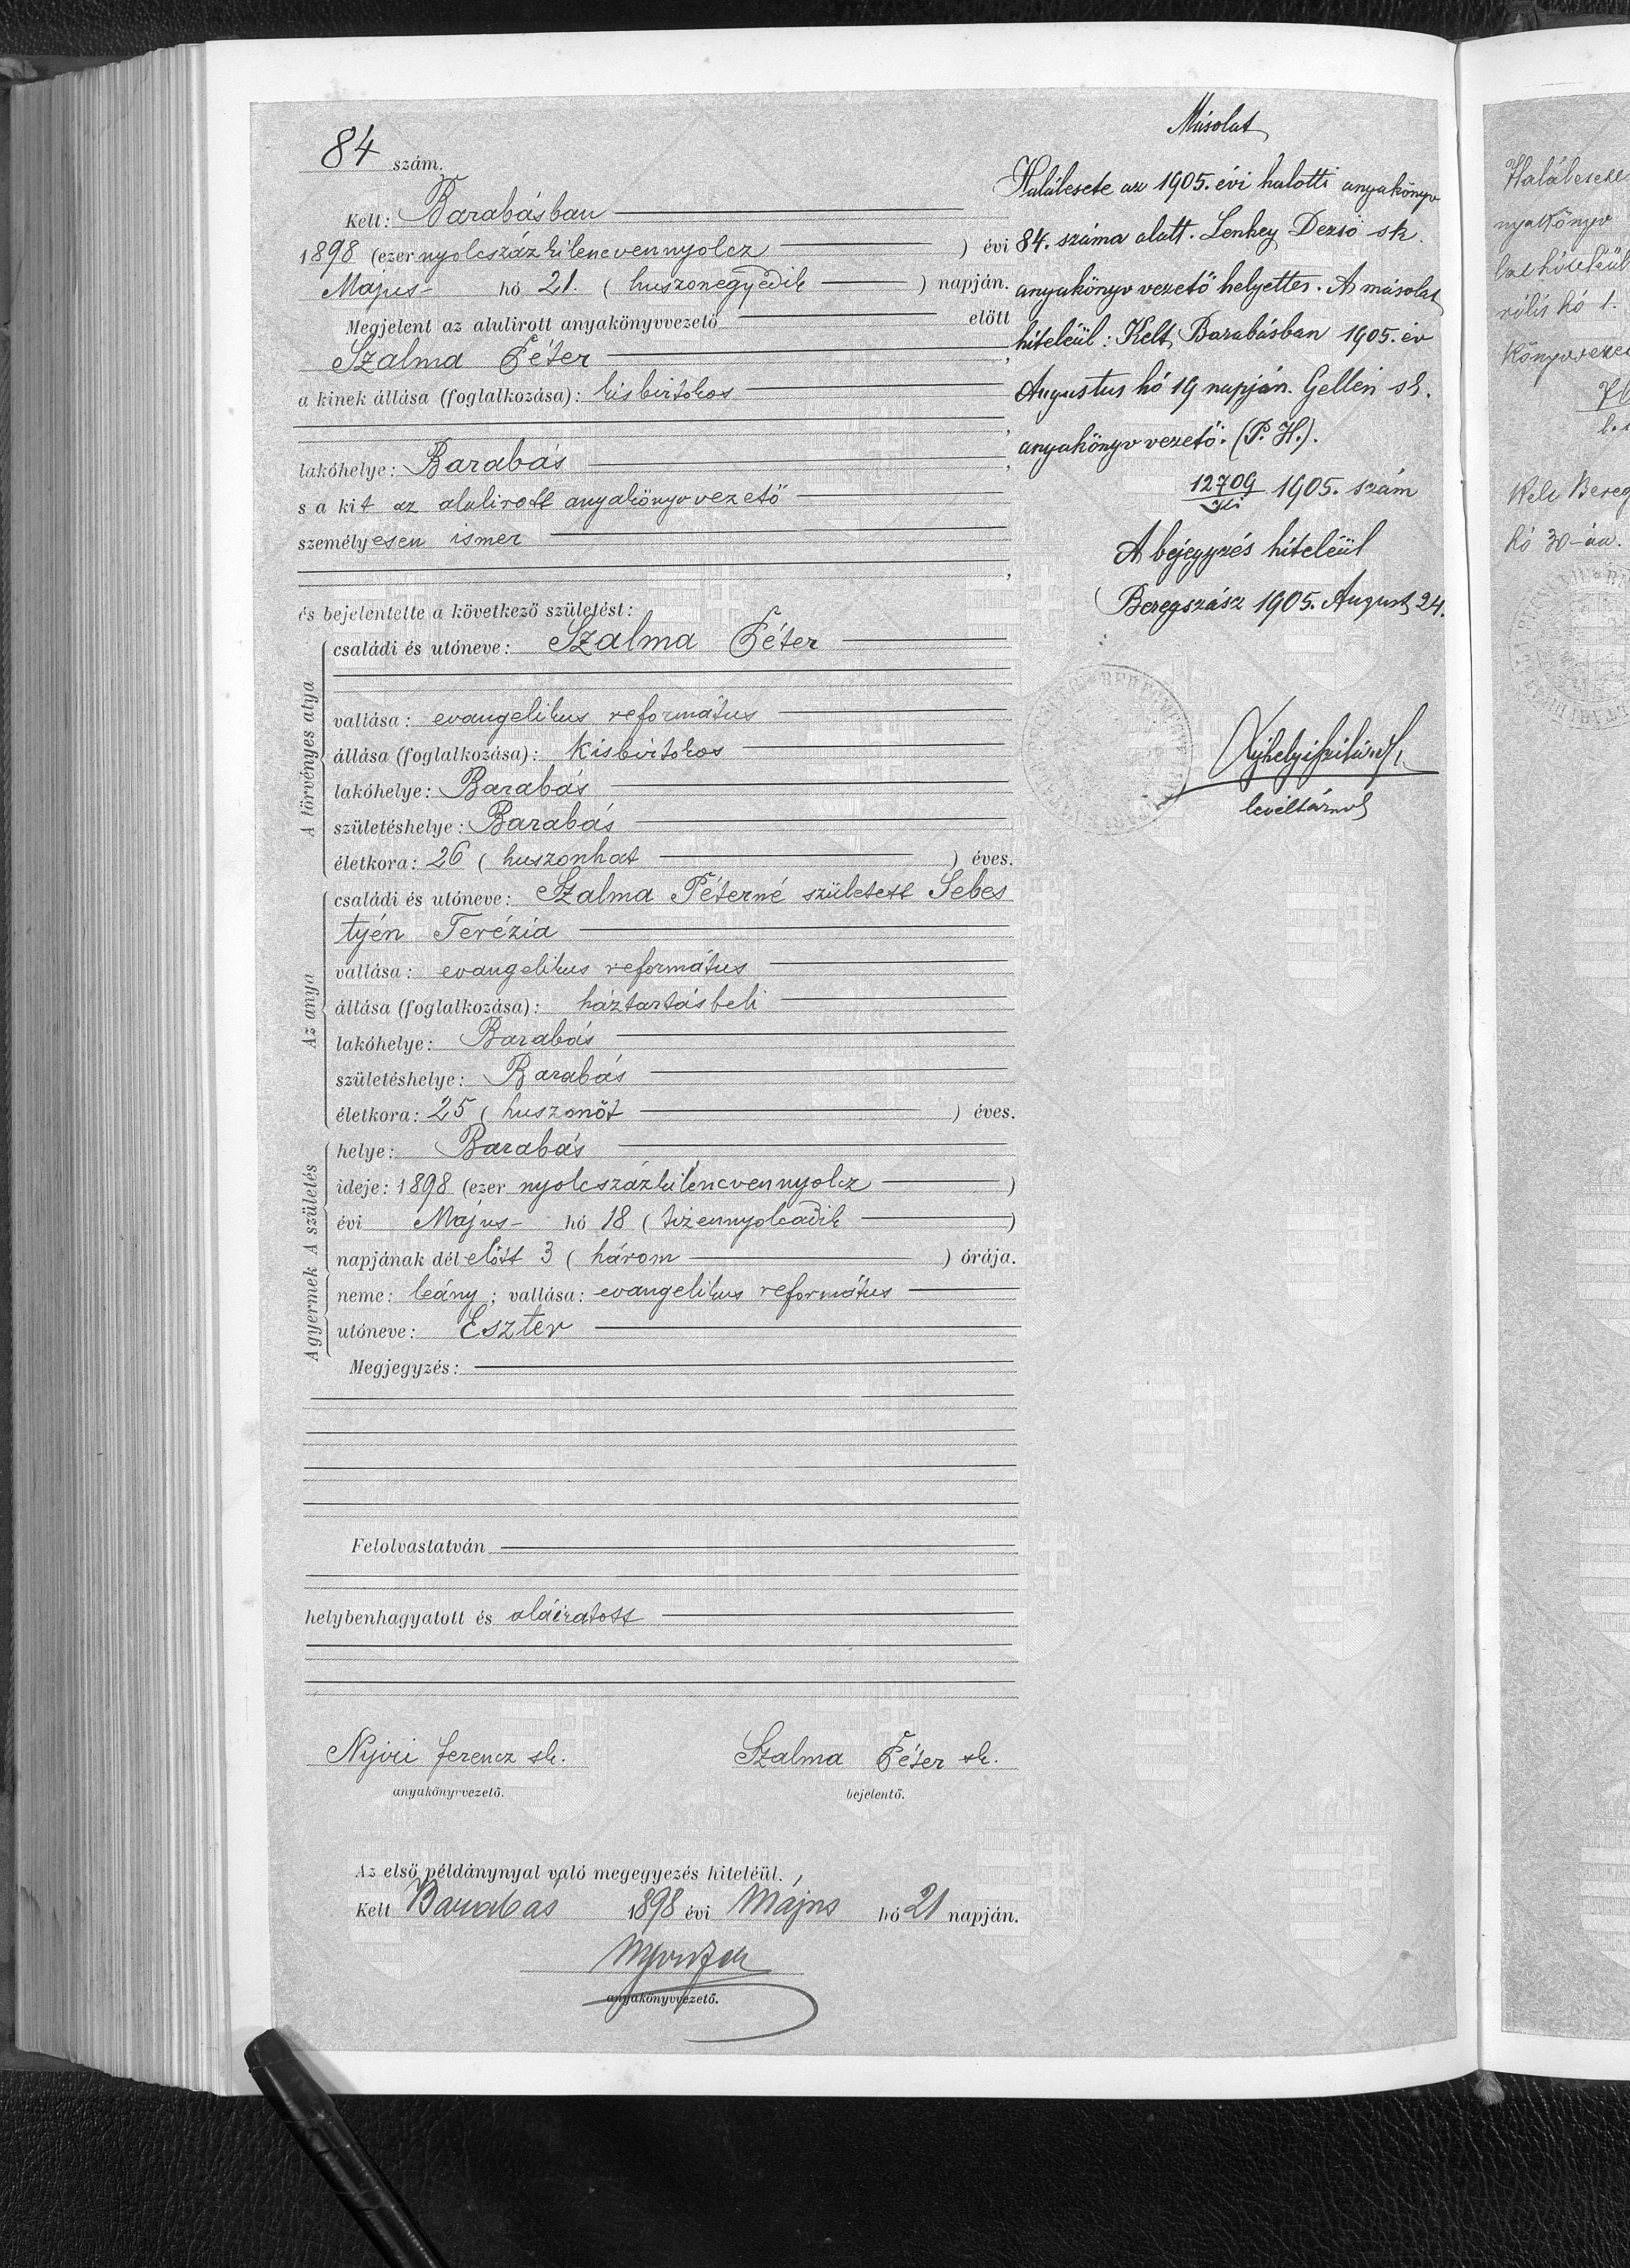 84 szám.
Kelt: Barabásban
1898 (ezer nyolcszázkilencvennyolcz ) évi
Május hó 21. ( huszonegyedik ) napján.
Megjelent az alulirott anyakönyvvezető előtt
Szalma Péter
a kinek állása (foglalkozása): kisbirtokos
lakóhelye: Barabás
s a kit az alulirott anyakönyvvezető
személyesen ismer
és bejelentette a következő születést:
A törvényes atya
családi és utóneve: Szalma Péter
vallása: evangelikus református
állása (foglalkozása): kisbirtokos
lakóhelye: Barabás
születéshelye: Barabás
életkora: 26 ( huszonhat ) éves.
Az anya
családi és utóneve: Szalma Péterné született Sebes
tyén Terézia
vallása: evangelikus református
állása (foglalkozása): háztartásbeli
lakóhelye: Barabás
születéshelye: Barabás
életkora: 25 ( huszonöt ) éves.
A születés
helye: Barabás
ideje: 1898 (ezer nyolcszázkilencvennyolcz )
évi Május hó 18 ( tizennyolcadik )
napjának dél előtt 3 ( három ) órája.
A gyermek
neme: leány; vallása: evangelikus református
utóneve: Eszter
Megjegyzés:
Felolvastatván
helybenhagyatott és aláiratott
Nyiri Ferencz sk. Szalma Péter sk.
anyakönyvvezető. bejelentő.
Az első példánynyal való megegyezés hiteléül.
Kelt Barabás 1898 évi Május hó 21 napján.
anyakönyvvezető.
Másolat
Halálesete az 1905. évi halotti anyakönyv
84. száma alatt. Lenkey Dezső sk
anyakönyv vezető helyettes. A másolat
hiteléül: Kelt Barabásban 1905. év
Augustus hó 19 napján. Gellén sk.
anyakönyv vezető. (P. H.).
12709 1905. szám
A bejegyzés hiteléül
Beregszász 1905. August 24.
levéltárnok
Halálesete
nyakönyv
rilis hó 1.
Kelt Bereg
hó 30-án.